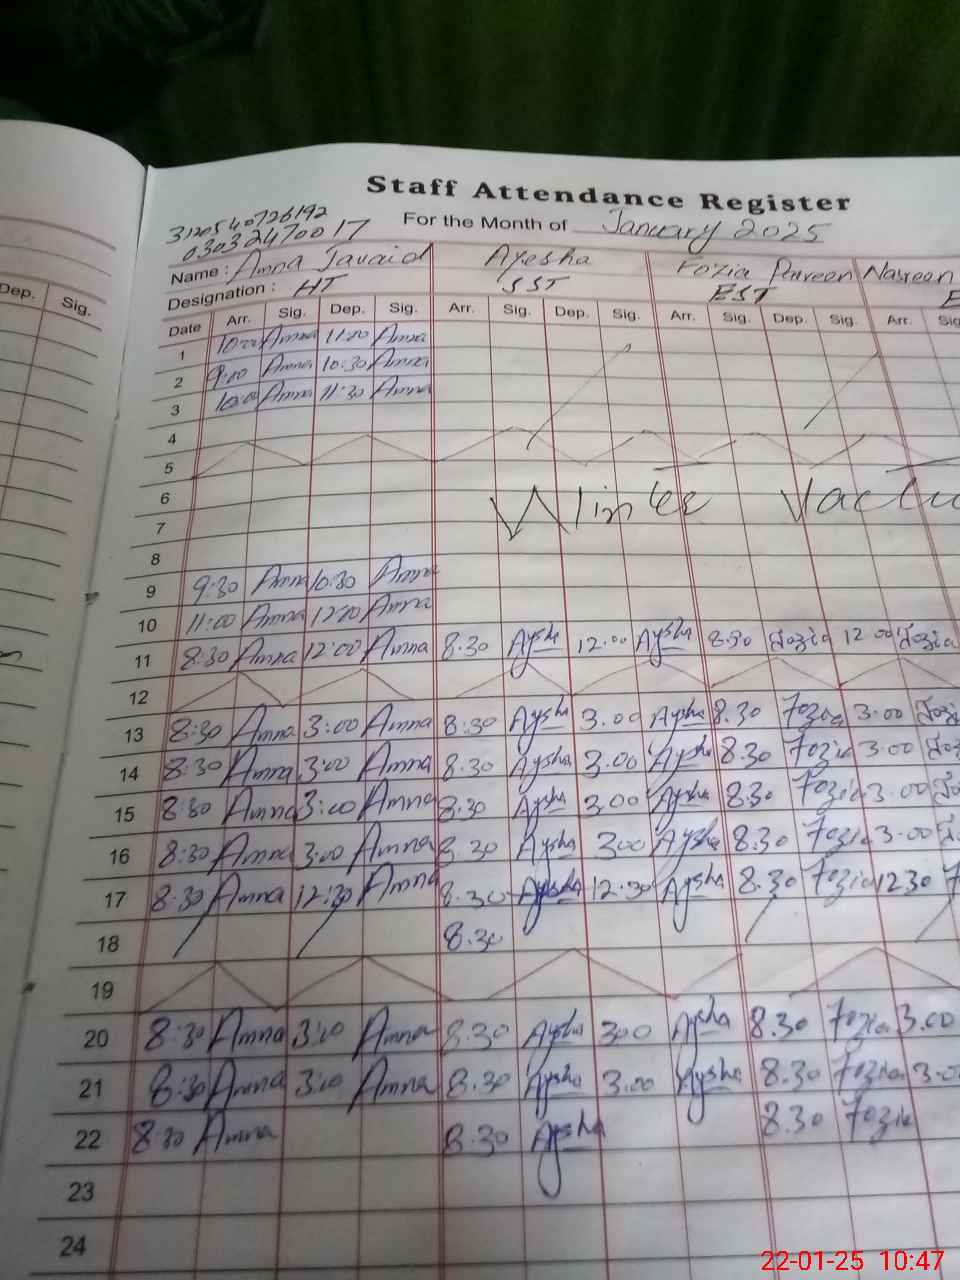 Staff Attendance Register
3120540726192
03032470017
For the Month of January 2025
Name : Amna Javaid Ayesha Fozia Perveen Nasreen
Designation : HT SST EST
Dep. Sig.
Date Arr. Sig. Dep. Sig. Arr. Sig. Dep. Sig. Arr. Sig. Dep. Sig. Arr. Sig
1 10:00 Amna 11:00 Amna
2 9:00 Amna 10:30 Amna
3 10:00 Amna 11:30 Amna
4
5
6 Winter
7
8
9 9:30 Amna 10:30 Amna
10 11:00 Amna 12:00 Amna
11 8:30 Amna 12:00 Amna 8.30 Aysha 12.00 Aysha 8.30 Fozia 12 00 Fozia
12
13 8:30 Amna 3:00 Amna 8:30 Aysha 3.00 Aysha 8.30 Fozia 3.00
14 8:30 Amna 3:00 Amna 8.30 Aysha 3.00 Aysha 8.30 Fozia 3.00
15 8:30 Amna 3:00 Amna 8.30 Aysha 3.00 Aysha 8.30 Fozia 3.00
16 8:30 Amna 3:00 Amna 8.30 Aysha 300 Aysha 8.30 Fozia 3.00
17 8:30 Amna 12:30 Amna 8.30 Aysha 12.30 Aysha 8.30 Fozia 1230
18 8.30
19
20 8:30 Amna 3:00 Amna 8.30 Aysha 300 Aysha 8.30 Fozia 3.00
21 8:30 Amna 3:00 Amna 8.30 Aysha 3.00 Aysha 8.30 Fozia 3.00
22 8:30 Amna 8.30 Aysha 8.30 Fozia
23
24
22-01-25 10:47